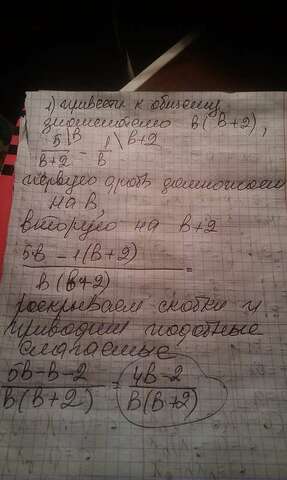 1) привести к общему
знаменателю в(в+2),
5\в / в+2 - 1\в+2 / в
первую дробь домножаем
на в,
вторую на в+2
5в - 1(в+2) / в(в+2) =
роскрываем скобки и
приводим подобные
слагаемые
5в-в-2 / в(в+2) = 4в-2 / в(в+2)